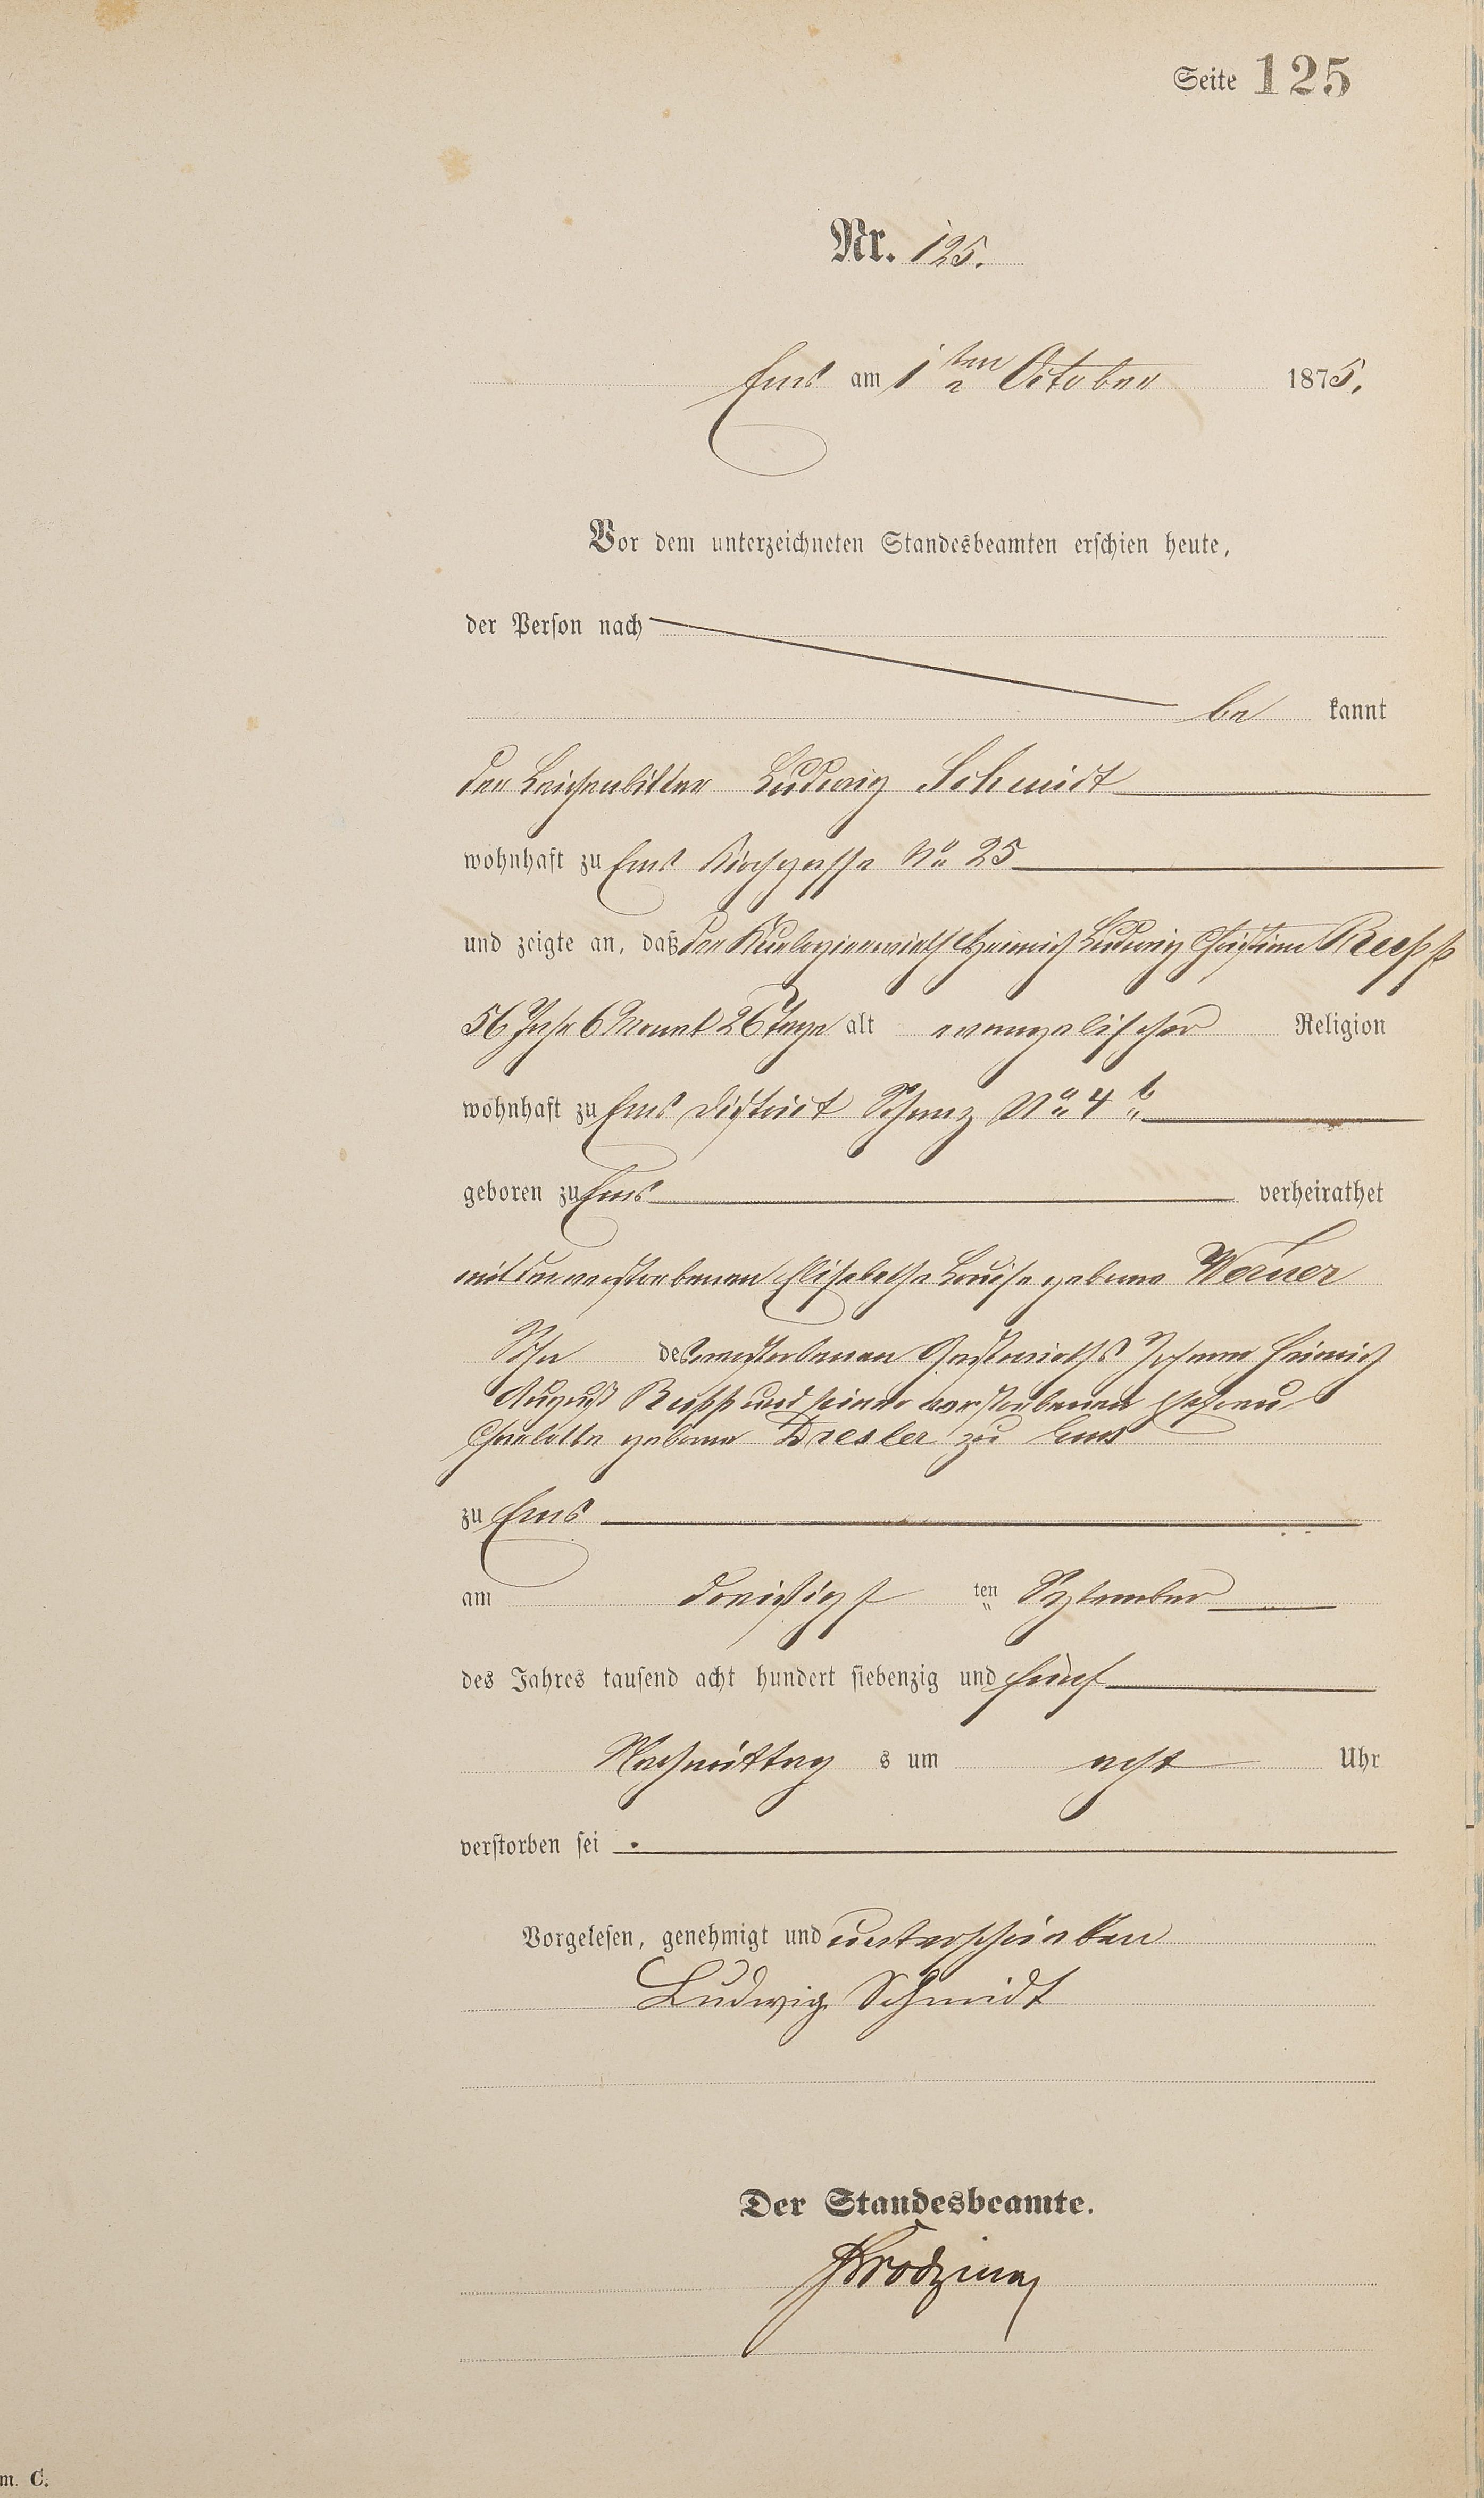 Seite 125
Nr. 125.
Ems am 1ten October 1875.
Vor dem unterzeichneten Standesbeamten erschien heute,
der Person nach
be kannt
der Leichenbitter Ludwig Schmidt
wohnhaft zu Ems Kirchgasse No 25
und zeigte an, daß der Heinrich Ludwig Christian
56 Jahr 6 Monat 26 Tage alt evangelischer Religion
wohnhaft zu Ems District Schanz No 4 b
geboren zu Ems verheirathet
mit der verstorbenen Elisabethe Louise geborne Werner
Sohn des verstorbenen Gastwirths Johann Heinrich
August und seiner verstorbenen Ehefrau
Charlotte geborne Dresler zu Ems
zu Ems
am dreißigst ten September
des Jahres tausend acht hundert siebenzig und fünf
Nachmittag s um acht Uhr
verstorben sei .
Vorgelesen, genehmigt und unterschrieben
Ludwig Schmidt
Der Standesbeamte.
m. C.